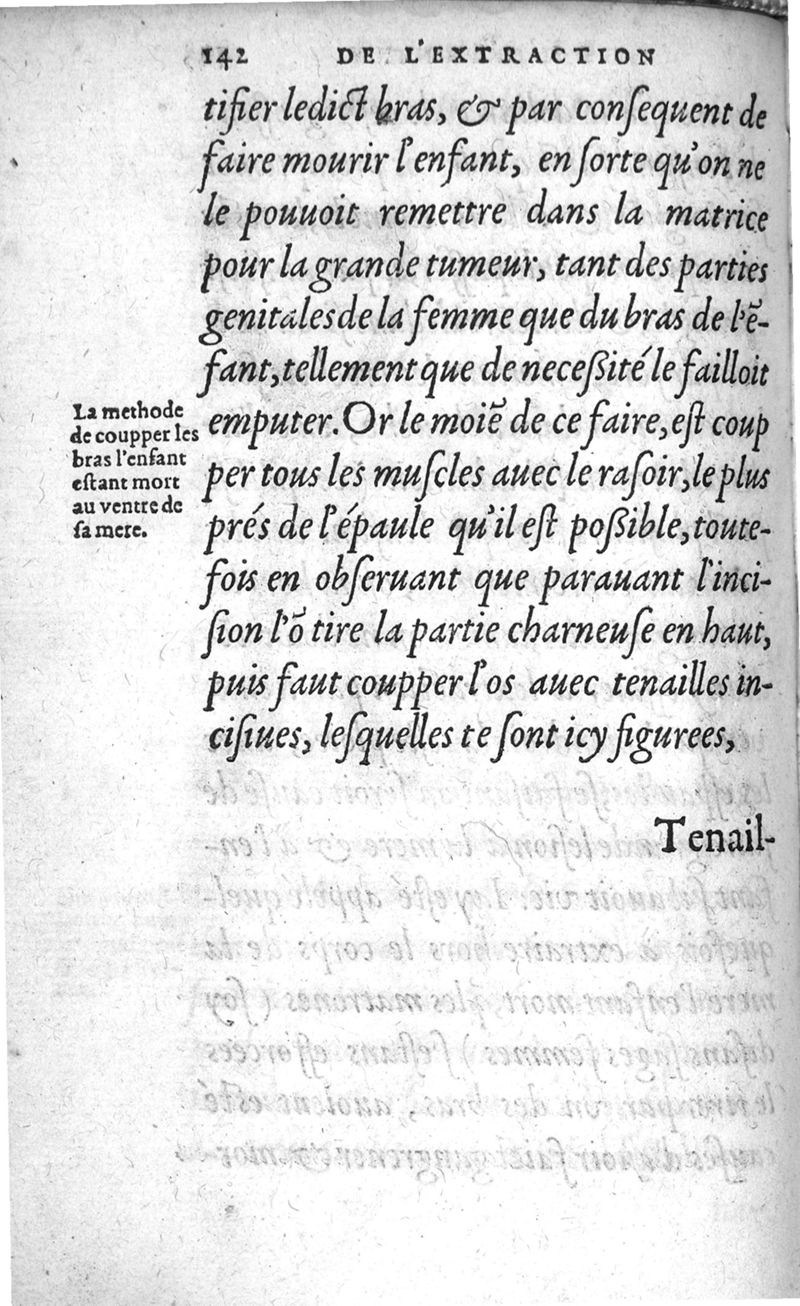 142 DE L'EXTRACTION
tifier ledict bras, & par conſequent de
faire mourir l'enfant, en ſorte qu'on ne
le pouuoit remettre dans la matrice
pour la grande tumeur, tant des parties
genitales de la femme que du bras de l'ẽ-
fant, tellement que de neceſſité le failloit
emputer. Or le moiẽ de ce faire, eſt coup
per tous les muſcles auec le raſoir, le plus
prés de l'épaule qu'il eſt poſſible, toute-
fois en obſeruant que parauant l'inci-
ſion l'õ tire la partie charneuſe en haut,
puis faut coupper l'os auec tenailles in-
ciſiues, leſquelles te ſont icy figurees,
Tenail-
La methode
de coupper les
bras l'enfant
eſtant mort
au ventre de
ſa mere.